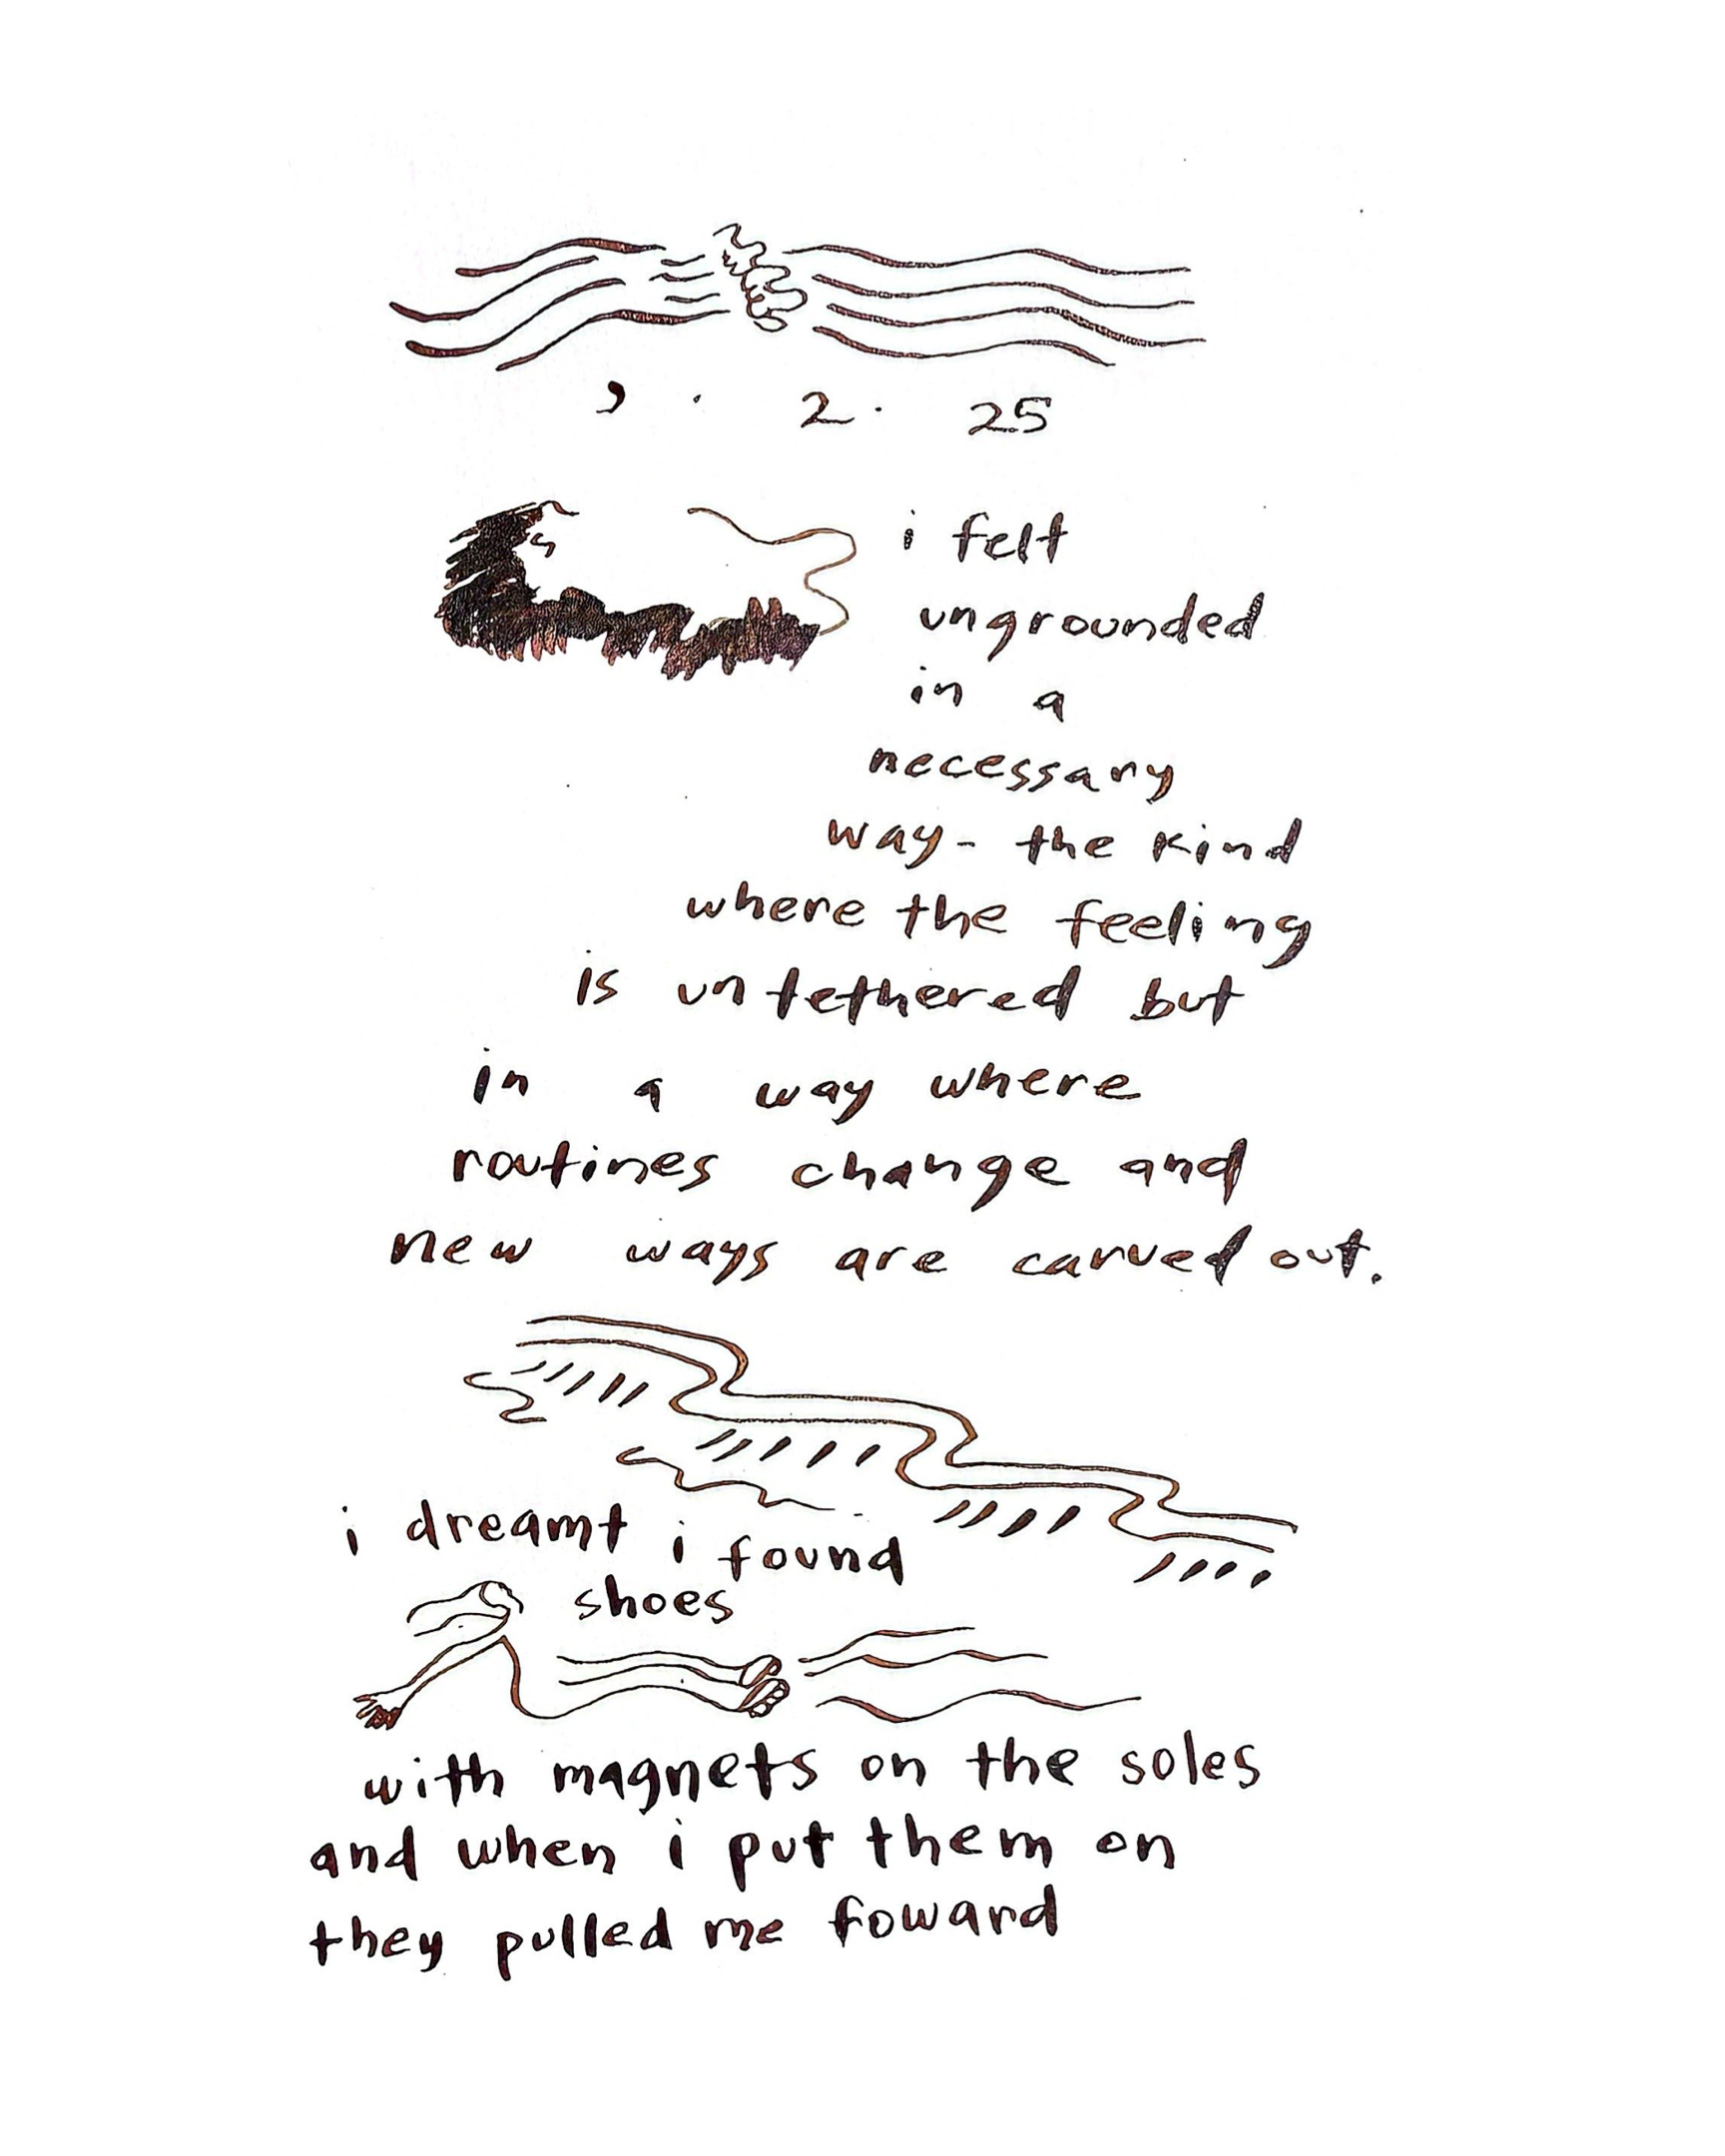 9 . 2 . 25
i felt
ungrounded
in a
necessary
way - the kind
where the feeling
is untethered but
in a way where
routines change and
new ways are carved out.
i dreamt i found
shoes
with magnets on the soles
and when i put them on
they pulled me foward